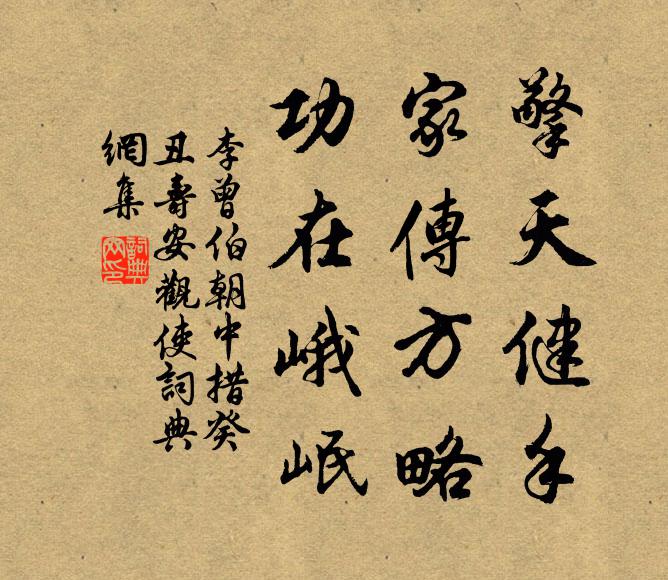 擎天健手
家傳方略
功在峨岷
李曾伯朝中措癸
丑壽安觀使詞典
網集
詞典網印